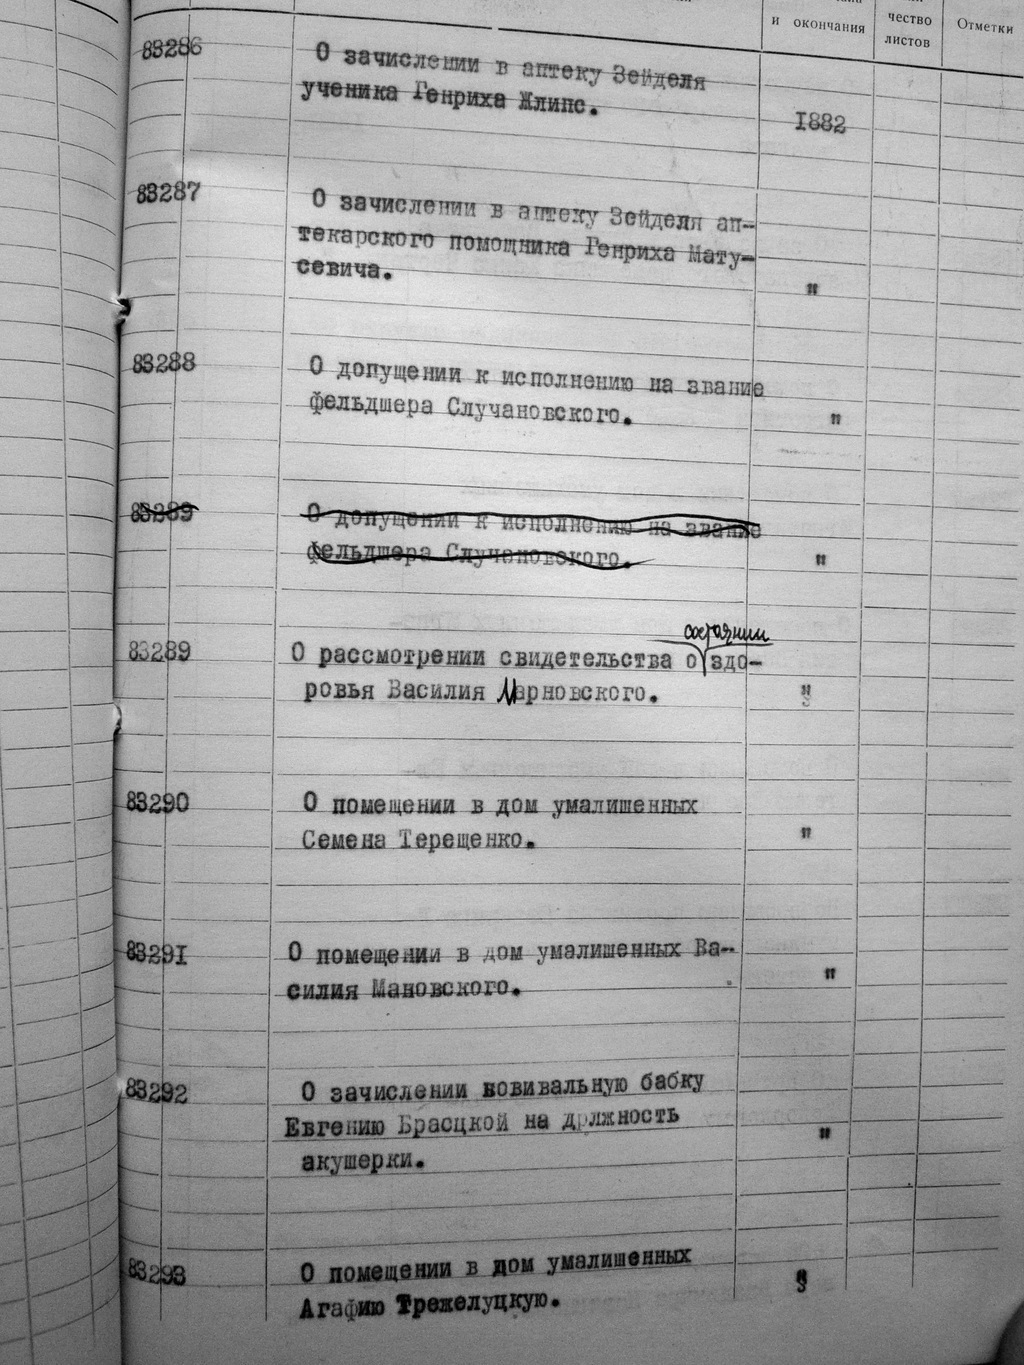 и окончания
чество
листов
Отметки
83286
О зачислении в аптеку Зейделя
ученика Генриха Жлипс.
1882
83287
О зачислении в аптеку Зейделя ап-
текарского помощника Генриха Мату-
севича.
"
83288
О допущении к исполнению на звание
фельдшера Случановского.
"
83289
О допущении к исполнению на звание
фельдшера Случановского.
"
83289
состоянии
О рассмотрении свидетельства о здо-
ровья Василия Марновского.
"
83290
О помещении в дом умалишенных
Семена Терещенко.
"
83291
О помещении в дом умалишенных Ва-
силия Мановского.
"
83292
О зачислении повивальную бабку
Евгению Брасцкой на должность
акушерки.
"
83293
О помещении в дом умалишенных
Агафию Трежелуцкую.
"